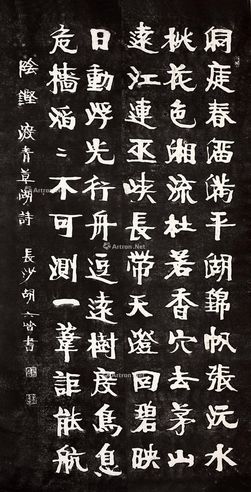 洞庭春溜滿平湖錦帆張沅水
桃花色湘流杜若香穴去茅山
遠江連巫峽長帶天澄回碧映
日動浮光行舟逗遠樹度鳥息
危檣滔〻不可測一葦詎能航
陰鏗渡青草湖詩 長沙胡六皆書
Artron.Net